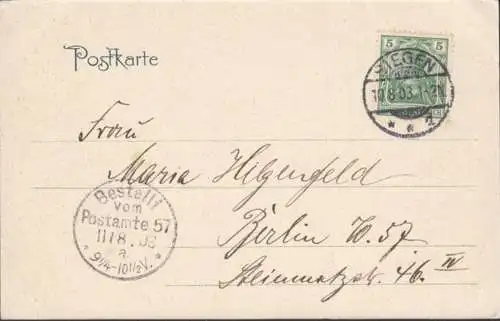 Postkarte
5 5
SIEGEN
10.8.03.
* * 2
Frau
Maria Hilgenfeld
Berlin W. 57
Steinmetzstr. 46. IV
Bestellt
vom
Postamte 57
11/8.03
a.
* 9¼-10½V. *